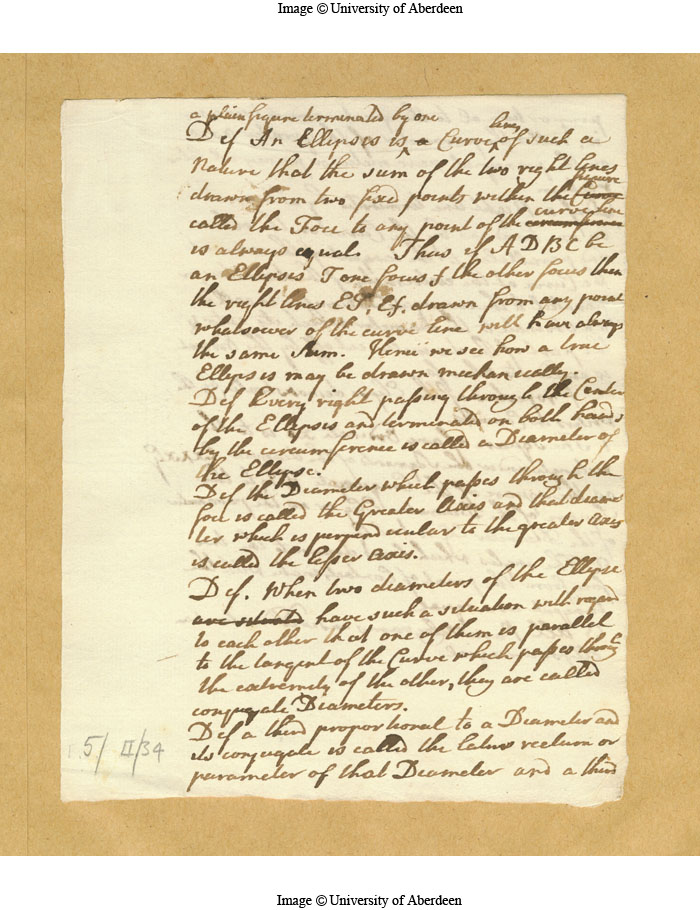 Image © University of Aberdeen
a plain figure terminated by one
Def An Ellipsis is a Curve line, of such a
Nature that the sum of the two right lines
drawn from two fixed points within the Curve figure
called the Foci to any point of the circumference curve line
is always equal. Thus if A D B C be
an Ellipsis T one focus f the other focus then
the right lines ET, Ef. drawn from any point
whatsoever of the curve line will have always
the same Sum. Hence we see how a true
Ellipsis may be drawn mechanically.
Def Every right passing through the Center
of the Ellipsis and terminated on both hands
by the circumference is called a Diameter of
the Ellipse.
Def the Diameter which passes through the
foci is called the Greater Axis and that diame
ter which is perpendicular to the greater axis
is called the lesser axis.
Def. When two diameters of the Ellipse
are situated have such a situation with regard
to each other that one of them is parallel
to the tangent of the Curve which passes throug
the extremity of the other, they are called
conjugate Diameters.
Def a third proportional to a Diameter and
its conjugate is called the latus rectum or
parameter of that Diameter and a third
5/ II/34
Image © University of Aberdeen